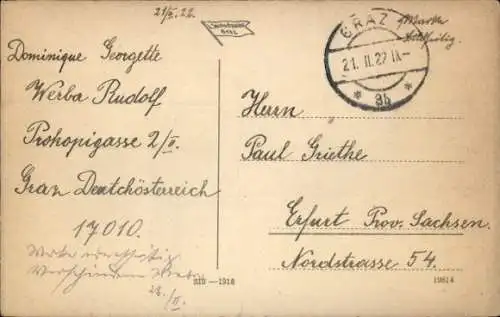 21/II. 22
Dominique Georgette
Werba Rudolf
Prohopigasse 2/II.
Graz Deutchösterreich
17010.
BIS — 1918
GRAZ
21. II. 22 IX—
* 9b *
Marke
Herrn
Paul Griethe
Erfurt Prov. Sachsen.
Nordstrasse 54.
19814